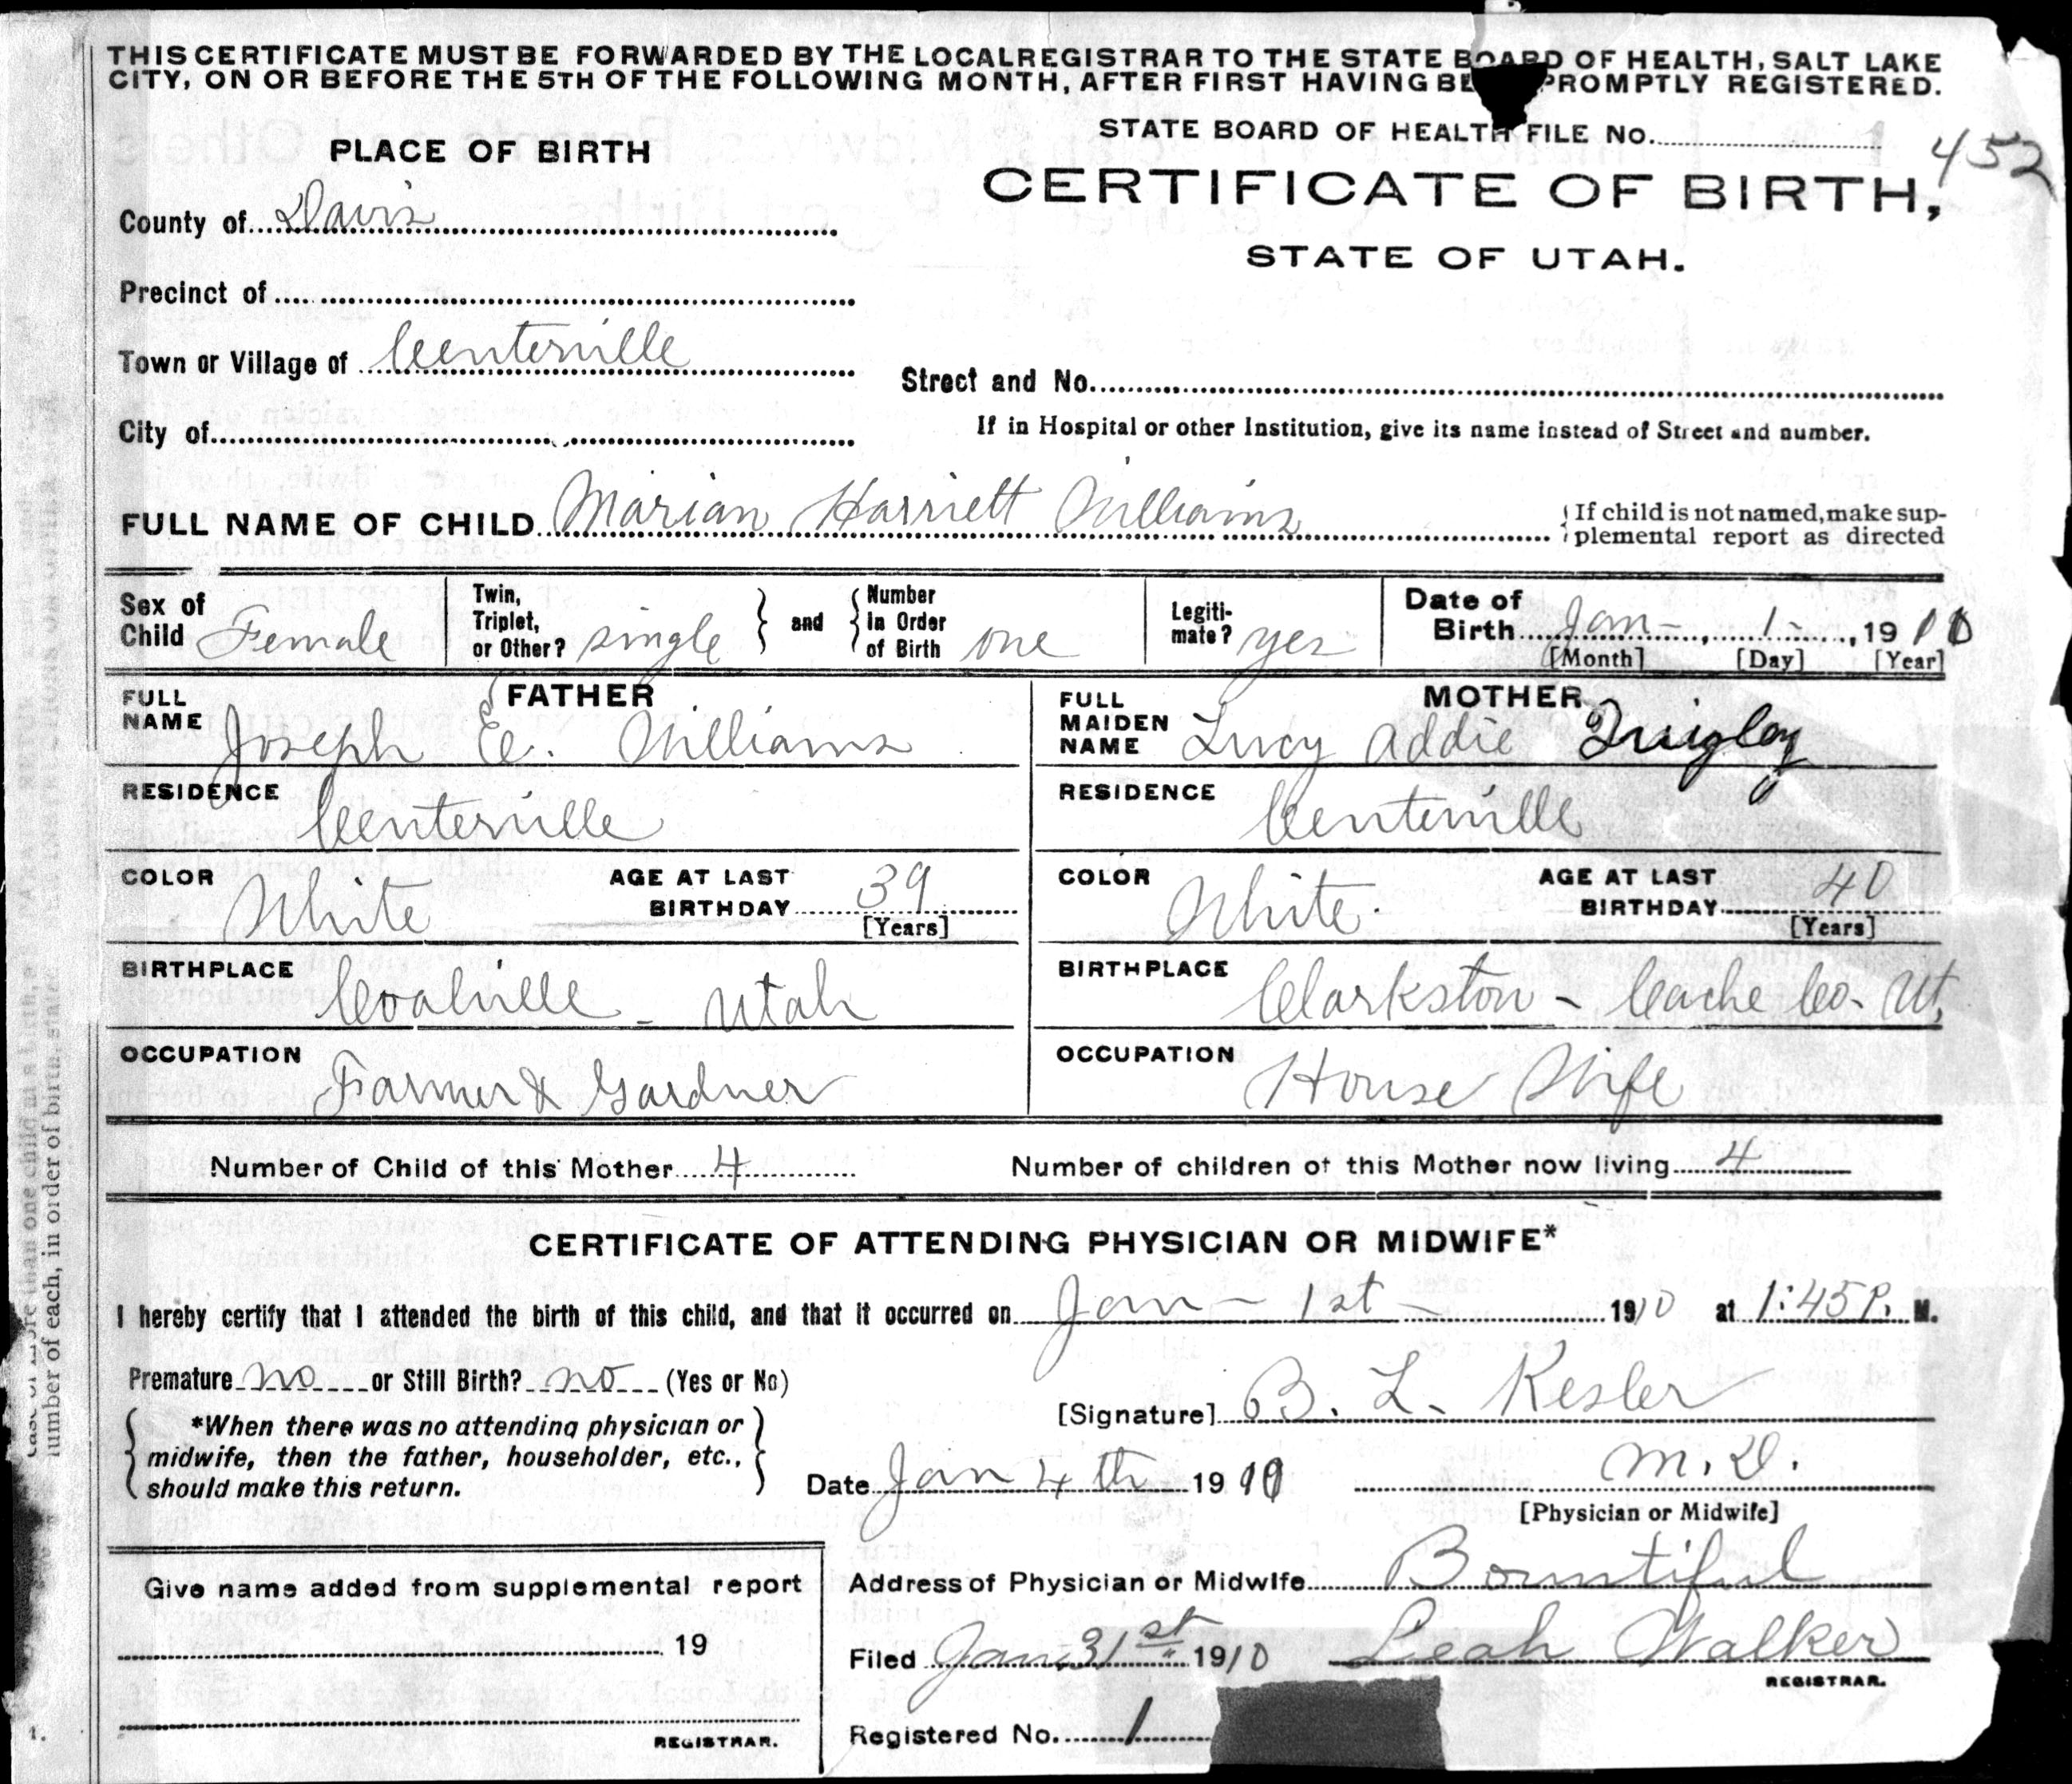 THIS CERTIFICATE MUST BE FORWARDED BY THE LOCAL REGISTRAR TO THE STATE BOARD OF HEALTH, SALT LAKE
CITY, ON OR BEFORE THE 5TH OF THE FOLLOWING MONTH, AFTER FIRST HAVING BE PROMPTLY REGISTERED.
STATE BOARD OF HEALTH FILE No. 452
PLACE OF BIRTH
CERTIFICATE OF BIRTH,
STATE OF UTAH.
County of Davis
Precinct of
Town or Village of Centerville
Street and No.
City of
If in Hospital or other Institution, give its name instead of Street and number.
FULL NAME OF CHILD Marian Harriett Williams
If child is not named, make sup-
plemental report as directed
Sex of Child Female
Twin, Triplet, or Other? single
and
Number in Order of Birth one
Legiti-mate? yes
Date of Birth Jan - 1 - 1910
[Month] [Day] [Year]
FATHER
FULL NAME Joseph E. Williams
MOTHER
FULL MAIDEN NAME Lucy Addie Quigley
RESIDENCE Centerville
RESIDENCE Centerville
COLOR White
AGE AT LAST BIRTHDAY 39
[Years]
COLOR White.
AGE AT LAST BIRTHDAY 40
[Years]
BIRTHPLACE Coalville - Utah
BIRTHPLACE Clarkston - Cache Co. Ut,
OCCUPATION Farmer & Gardner
OCCUPATION House Wife
Number of Child of this Mother 4
Number of children of this Mother now living 4
CERTIFICATE OF ATTENDING PHYSICIAN OR MIDWIFE*
I hereby certify that I attended the birth of this child, and that it occurred on Jan - 1st - 1910 at 1:45 P. M.
Premature no or Still Birth? no (Yes or No)
[Signature] B. L. Kesler
*When there was no attending physician or
midwife, then the father, householder, etc.,
should make this return.
Date Jan 4th 1910
M.D.
[Physician or Midwife]
Give name added from supplemental report
19
REGISTRAR.
Address of Physician or Midwife Bountiful
Filed Jan. 31st 1910
Leah Walker
REGISTRAR.
Registered No. 1
than one child in a
number of each, in order of birth, state